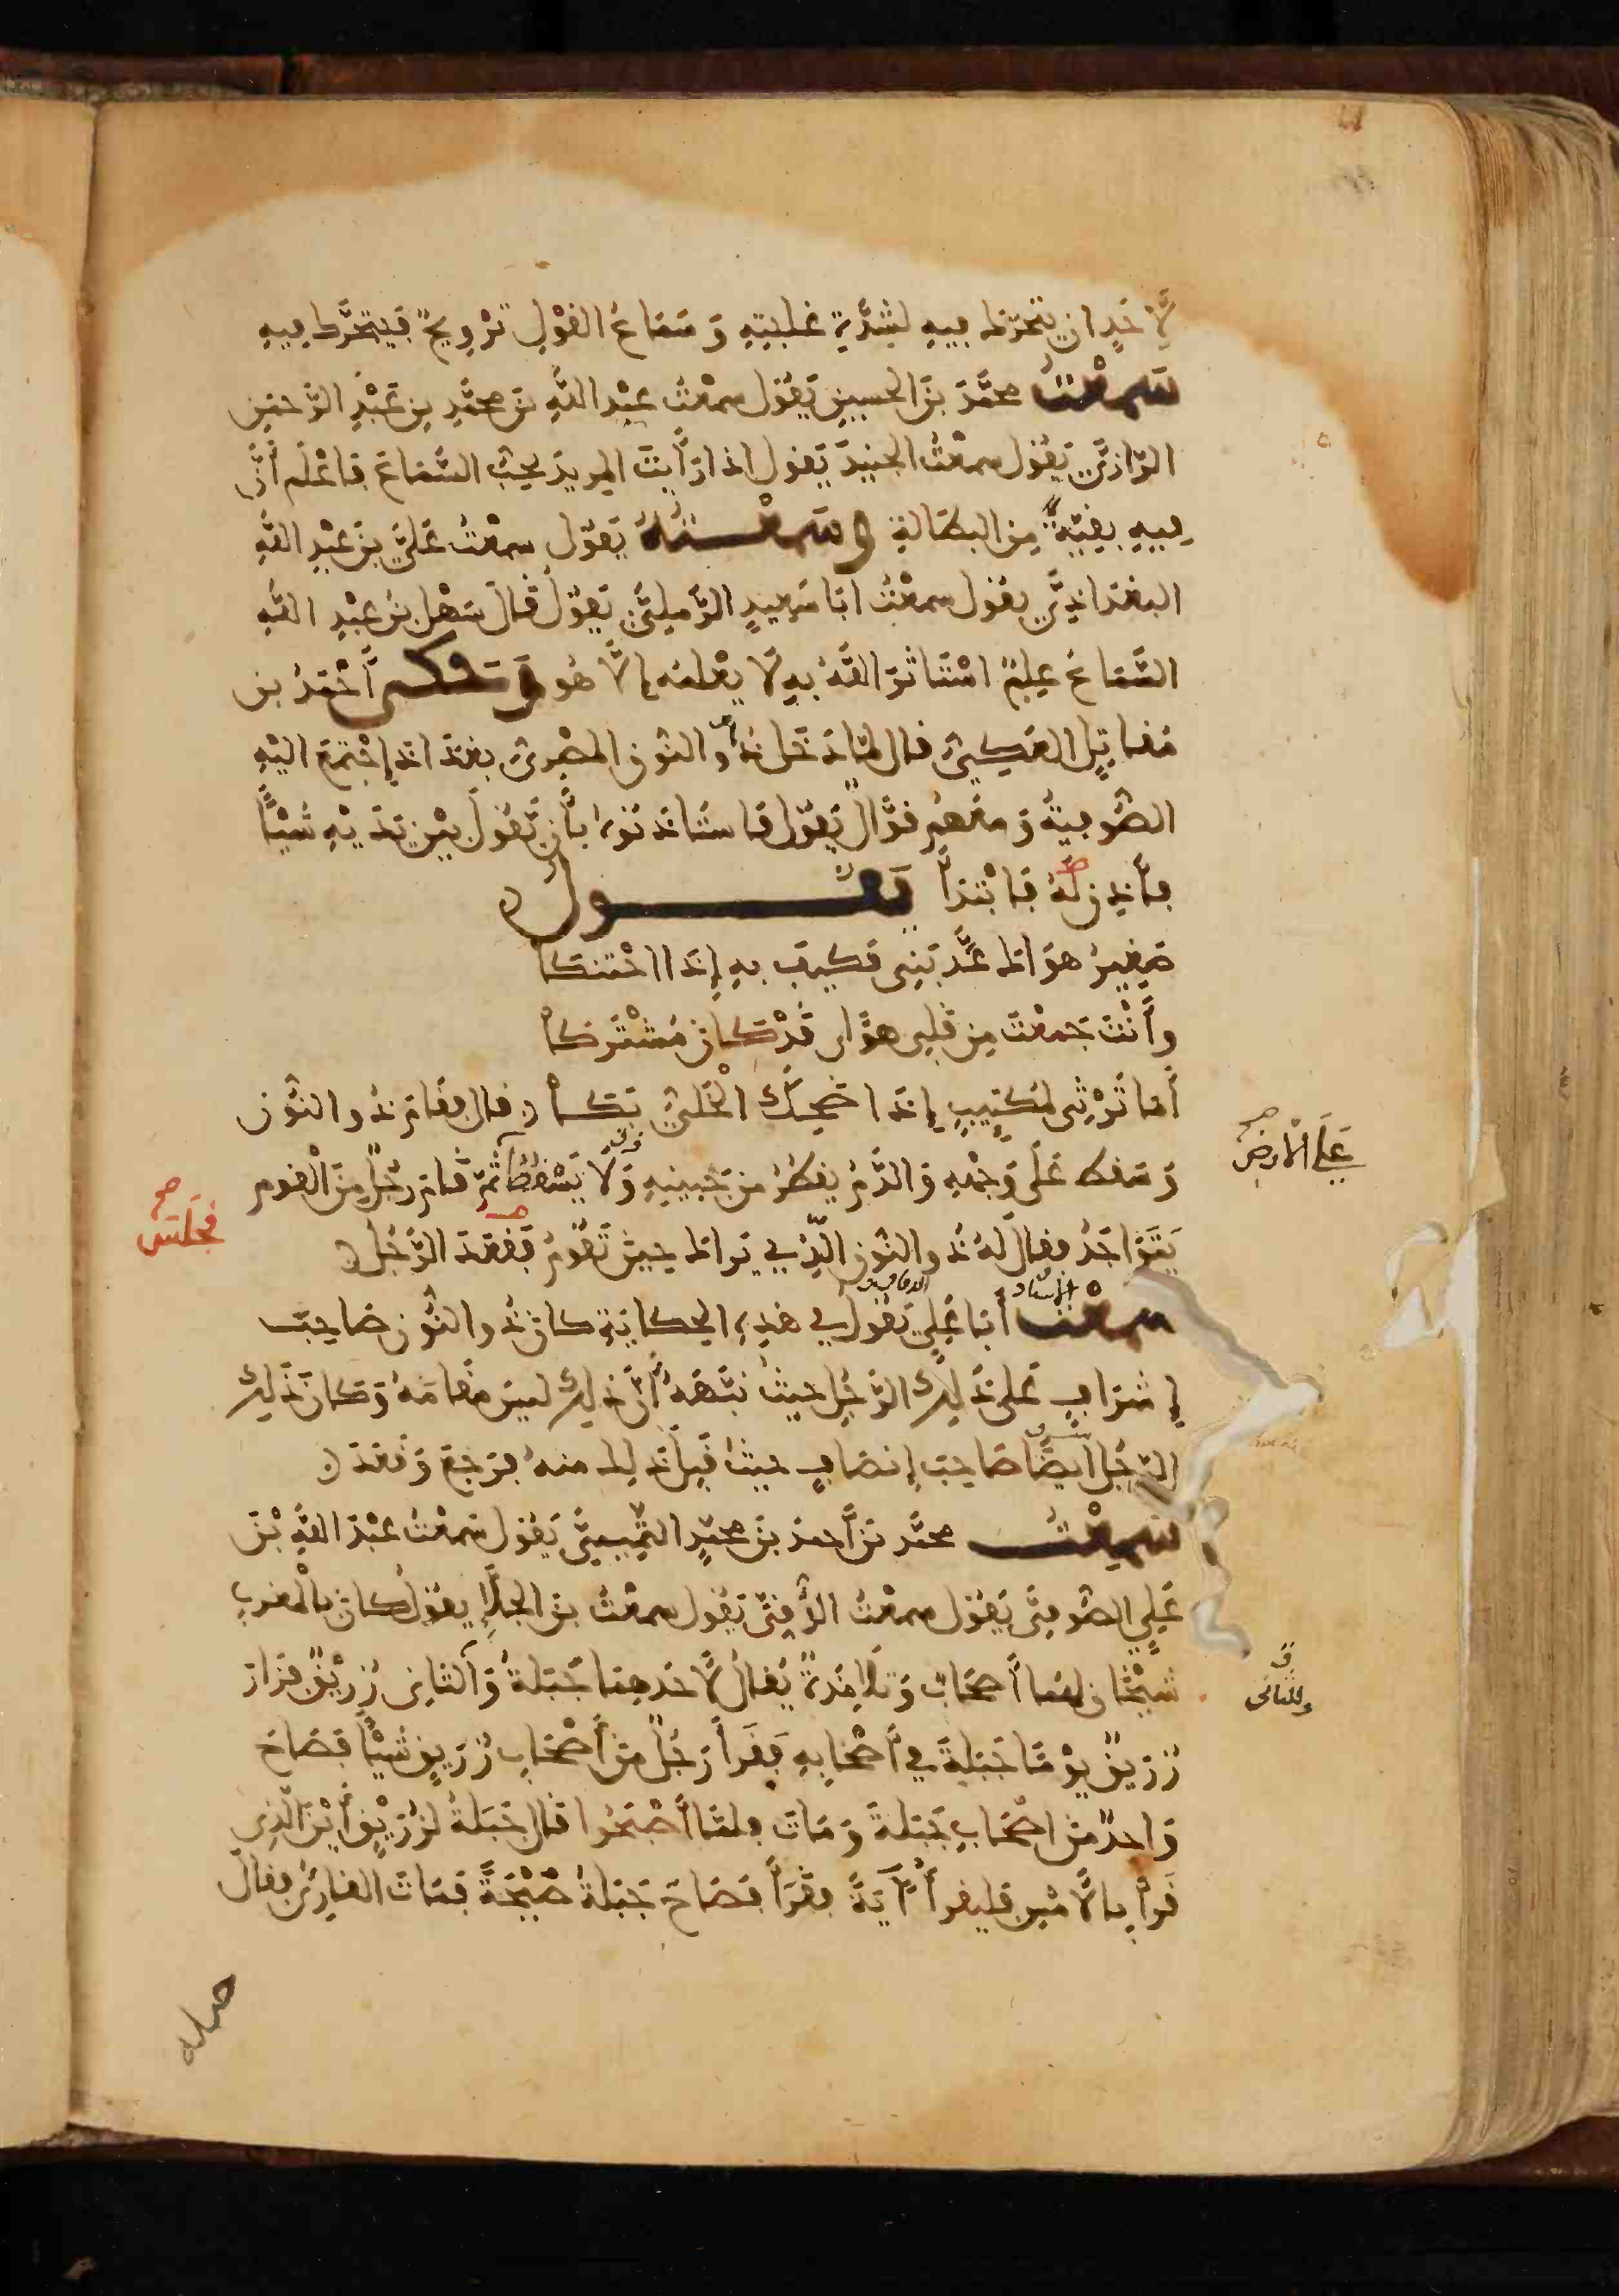 لِأَحَدٍ ان يتحرّك فيهِ لشدّةِ غلبتِهِ وَسَمَاعُ القَوْلِ تَرْوِيحٌ فَيتحَرَّك فِيهِ
سَمِعْتُ محمَّدَ بنَ الحسينِ يَقُول سمعْتُ عبْدَ اللَّهِ بنَ محمَّدِ بنِ عَبْدِ الرَّحمٰنِ
الرّازيَّ يَقُول سمعْتُ الجنيدَ يَقول اذا رَأيتَ المريدَ يحبّ السَّمَاعَ فاعْلَم أنَّ
فِيهِ بقِيَّةً مِنَ البطَالةِ وسَمِعْتُهُ يَقُول سمعْتُ عَلِيَّ بنَ عبْدِ اللَّهِ
البغدَاذيَّ يقول سمعْتُ ابَا سَعِيدٍ الرَّمليَّ يَقُول قَالَ سَهْل بنُ عبْدِ اللَّهِ
السَّمَاعُ عِلمٌ اسْتَاثَرَ اللَّهُ بهِ لَا يعْلمُه إلَّا هُوَ وَحَكَى أَحْمَدُ بن
مُقاتِلٍ العَكِّيُّ قال لمّا دَخَل ذُو النُّون المصْرىّ بغدَاذ اجْتمَعَ اليْهِ
الصُّوفيَةُ وَمعَهُم قوَّالٌ يَقُول فاستَاذنوهُ بأنْ يَقُولَ بيْن يَدَيْهِ شَيْئًا
فأذِن لَهُ فَابْتدَأَ يَقُــولُ
صَغِيرُ هوَاكَ عَذَّبَنِى فَكيفَ بهِ إذَا احْتنَكَا
وأَنْتَ جَمعْتَ مِن قلبِى هوًى قَدْ كَانَ مُشْتَرَكَا
أَمَا تَرْثِى لمُكتَئِبٍ إذَا ضَحِكَ الخَلِيُّ بَكَا قال فقَامَ ذُو النُّون
وَسَقط عَلَى وَجْههِ وَالدَّمُ يقطُرُ من جَبِينِهِ وَلَا يَسْقُطُ ثمّ قَامَ رَجُلٌ مِنَ القوم
عَلَى الْأَرْضِ
يَتَوَاجَدُ فقال لَهُ ذُو النُّون الَّذي يَرَاكَ حِينَ تَقُومُ فَقعَدَ الرَّجُل
فجلَسَ
سمعتُ الأستاذ أبَا عَلِي الدقاق يَقُول في هَذِهِ الحكَايَةِ كَانَ ذُو النُّون صَاحِبَ
إشرَافٍ عَلى ذَلِكَ الرَّجُلِ حيثُ نبَّهَهُ أَنَّ ذلِكَ ليسَ مقَامَهُ وَكَانَ ذَلِكَ
الرّجُل ايضًا صَاحبَ إنصَافٍ حيثُ قَبِلَ ذَلِكَ منهُ فرَجعَ وَقَعَدَ
سَمِعْتُ محمَّدَ بنَ أحمدَ بنَ محمّدٍ التَّمِيميَّ يَقُول سَمعْتُ عبْدَ اللَّهِ بْنَ
عَلِي الصُّوفِيَّ يَقُول سمعْتُ الرَّقيَّ يَقُول سمعْتُ بنَ الجلَّا يقُولُ كان بالمغرب
شيْخَان لهُمَا أَصحَابٌ وَتلَامذةٌ يُقالُ لِأَحَدِهمَا جَبَلةُ وَالثانِى زُرَيْقٌ فزَارَ
وللثانى
زُرَيقٌ يوْمًا جَبَلةَ في أَصْحَابِهِ فَقَرأَ رَجُلٌ منْ أَصْحَابِ زُرَيقٍ شَيْئًا فصَاحَ
وَاحدٌ منْ اصْحَابِ جَبَلةَ وَمَاتَ فلمَّا أَصْبَحُوا قَالَ جَبَلةُ لزُرَيْقٍ أَيْنَ الَّذِى
قَرأَ بالأَمْسِ فليقرأْ آيَةً فقَرَأَ فصَاحَ جَبَلةُ صَيْحَةً فمَاتَ القَارِئُ فقالَ